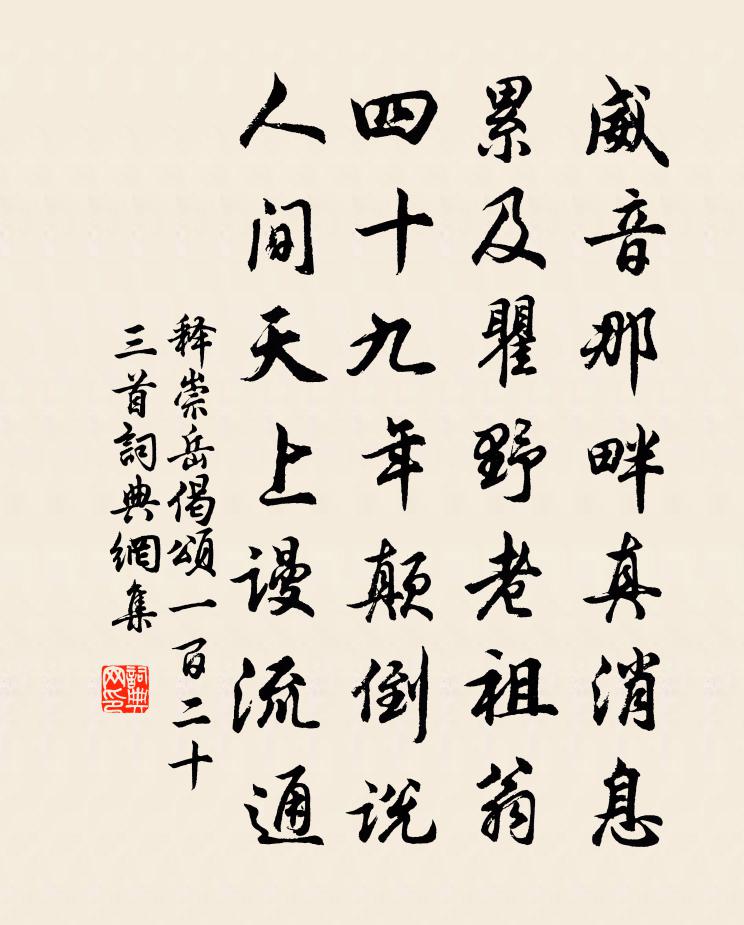 威音那畔真消息
累及瞿野老祖翁
四十九年颠倒説
人间天上谩流通
释崇岳偈頌一百二十
三首詞典網集
詞典
网印